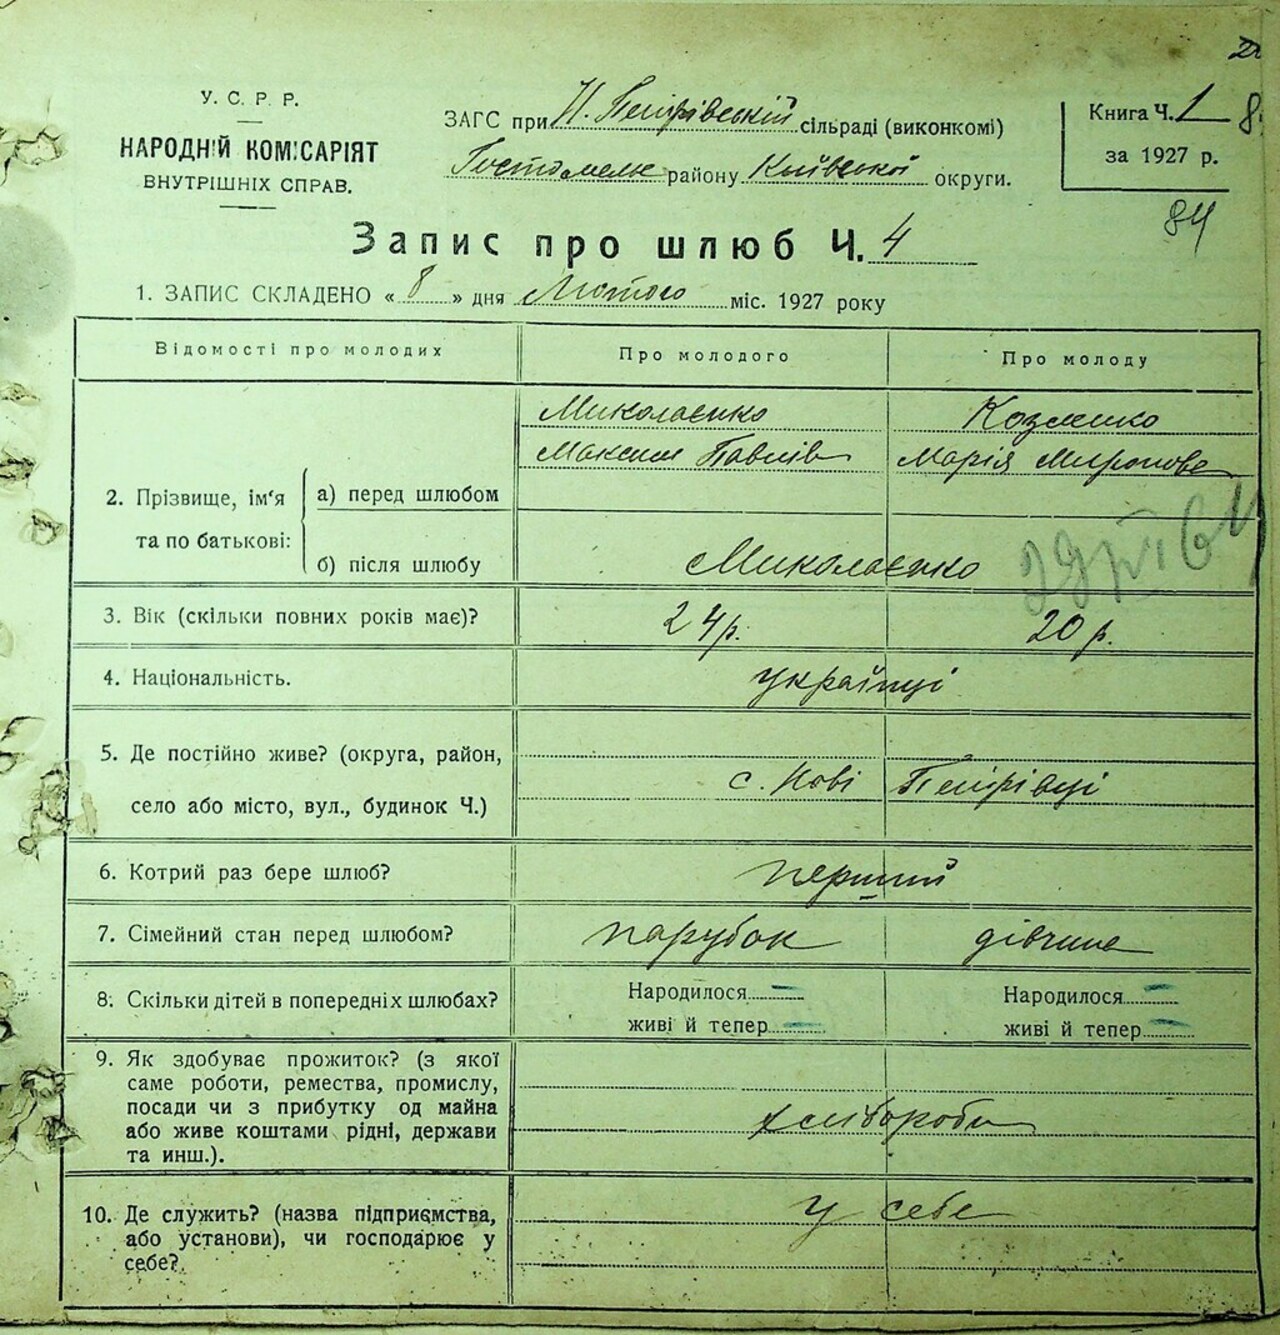 У. С. Р. Р.
НАРОДНІЙ КОМІСАРІЯТ
ВНУТРІШНІХ СПРАВ.
ЗАГС при Н. Петрівській сільраді (виконкомі)
Гостомельс району Київської округи.
Книга Ч. 1
за 1927 р.
84
Запис про шлюб Ч. 4
1. ЗАПИС СКЛАДЕНО « 8 » дня Лютого міс. 1927 року
Відомості про молодих Про молодого Про молоду
Миколаєнко Козленко
Максим Павлів Марія Миронова
2. Прізвище, ім'я та по батькові: а) перед шлюбом
б) після шлюбу Миколаєнко
3. Вік (скільки повних років має)? 24 р. 20 р.
4. Національність. українці
5. Де постійно живе? (округа, район,
село або місто, вул., будинок Ч.) с. Нові Петрівці
6. Котрий раз бере шлюб? перший
7. Сімейний стан перед шлюбом? парубок дівчина
8. Скільки дітей в попередніх шлюбах? Народилося — Народилося —
живі й тепер — живі й тепер —
9. Як здобуває прожиток? (з якої
саме роботи, ремества, промислу,
посади чи з прибутку од майна
або живе коштами рідні, держави
та инш.). хлібороби
10. Де служить? (назва підприємства,
або установи), чи господарює у
себе? у себе